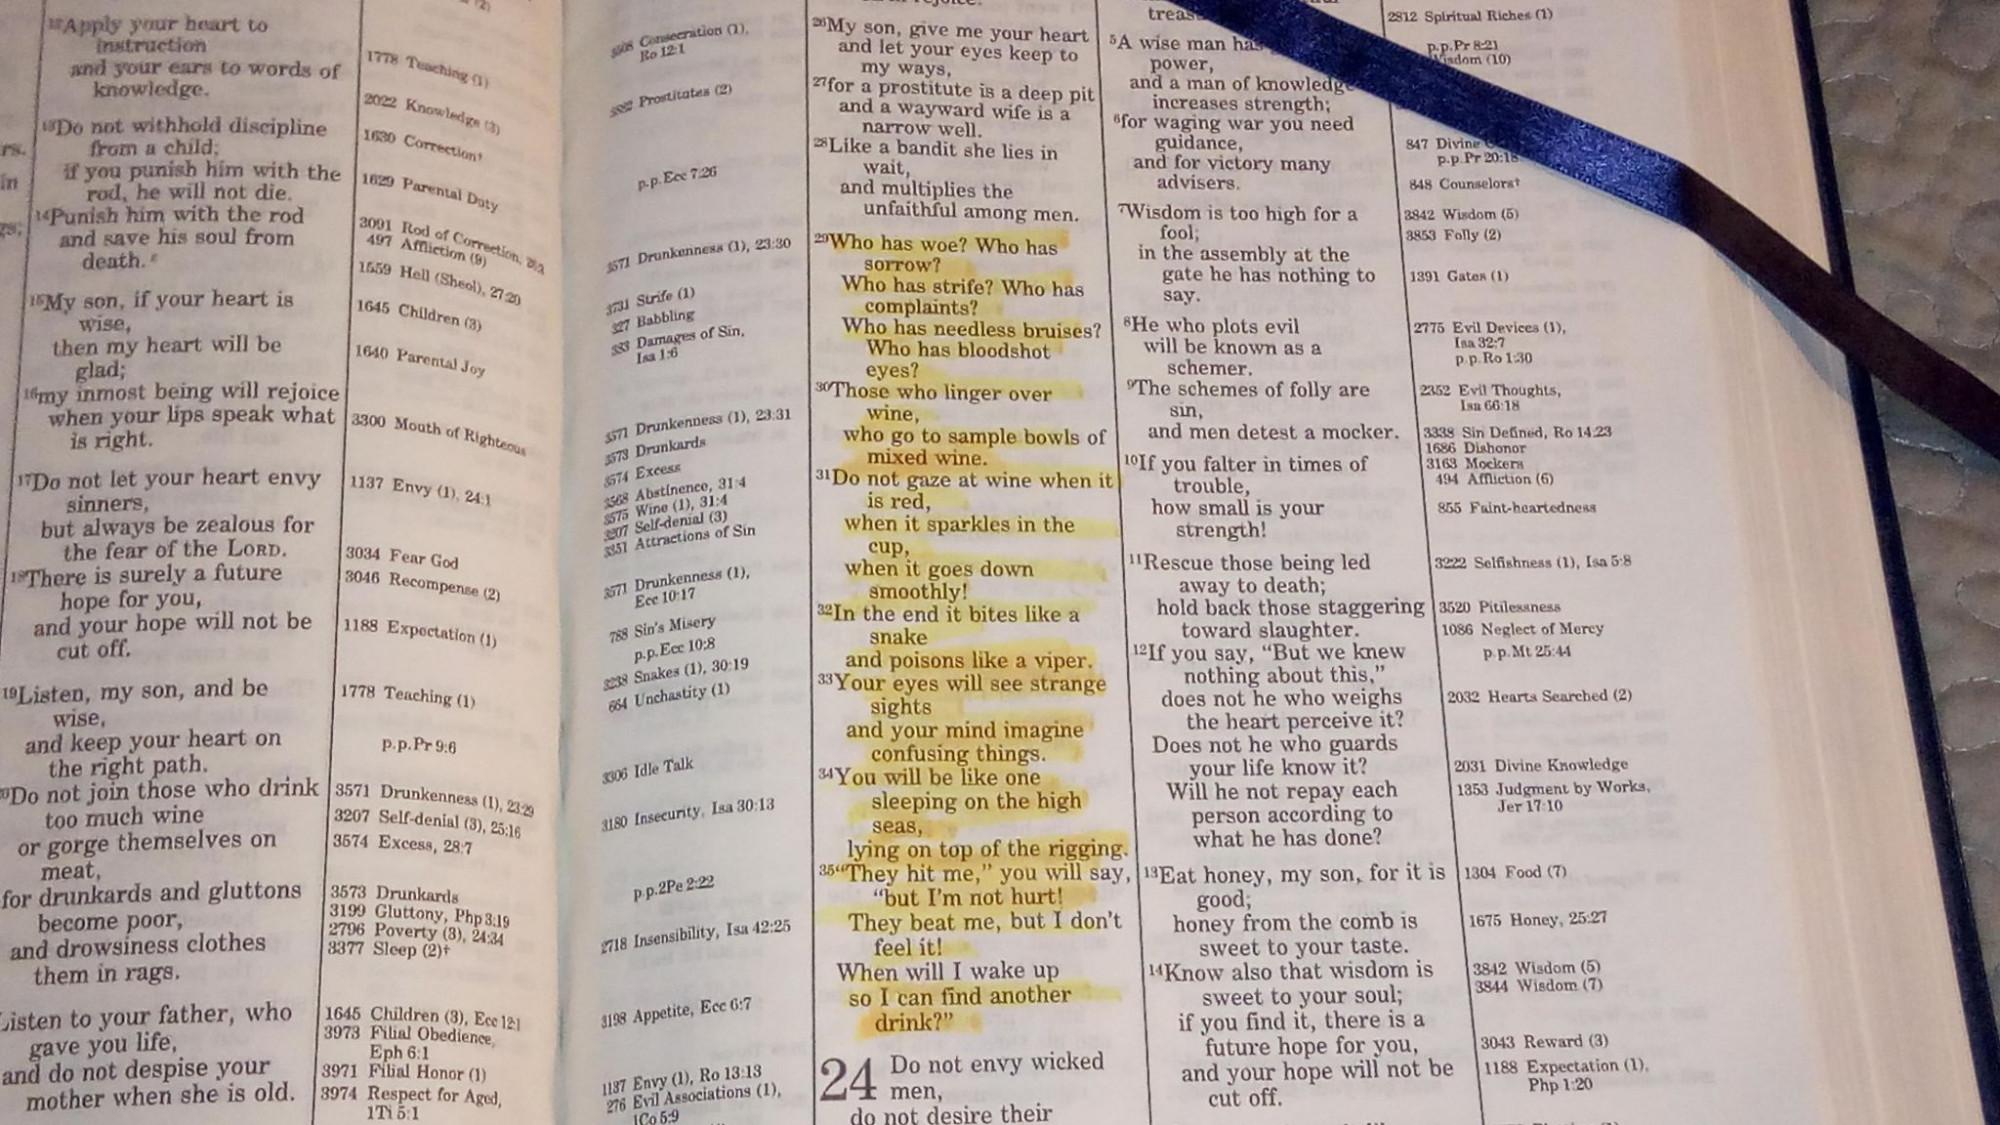 rs.
in
gs;
¹²Apply your heart to
instruction
and your ears to words of
knowledge.
¹³Do not withhold discipline
from a child;
if you punish him with the
rod, he will not die.
¹⁴Punish him with the rod
and save his soul from
death.
¹⁵My son, if your heart is
wise,
then my heart will be
glad;
¹⁶my inmost being will rejoice
when your lips speak what
is right.
¹⁷Do not let your heart envy
sinners,
but always be zealous for
the fear of the LORD.
¹⁸There is surely a future
hope for you,
and your hope will not be
cut off.
¹⁹Listen, my son, and be
wise,
and keep your heart on
the right path.
Do not join those who drink
too much wine
or gorge themselves on
meat,
for drunkards and gluttons
become poor,
and drowsiness clothes
them in rags.
Listen to your father, who
gave you life,
and do not despise your
mother when she is old.
(2)
1778 Teaching (1)
2022 Knowledge (3)
1630 Correction†
1629 Parental Duty
3091 Rod of Correction,
497 Affliction (9)
1559 Hell (Sheol), 27:20
1645 Children (3)
1640 Parental Joy
3300 Mouth of Righteous
1137 Envy (1), 24:1
3034 Fear God
3046 Recompense (2)
1188 Expectation (1)
1778 Teaching (1)
p.p.Pr 9:6
3571 Drunkenness (1), 23:29
3207 Self-denial (3), 25:16
3574 Excess, 28:7
3573 Drunkards
3199 Gluttony, Php 3:19
2796 Poverty (3), 24:34
3377 Sleep (2)†
1645 Children (3), Ecc 12:1
3973 Filial Obedience,
Eph 6:1
3971 Filial Honor (1)
3974 Respect for Aged,
1Ti 5:1
3508 Consecration (1),
Ro 12:1
Prostitutes (2)
p.p.Ecc 7:26
3571 Drunkenness (1), 23:30
3731 Strife (1)
327 Babbling
Damages of Sin,
Isa 1:6
3571 Drunkenness (1), 23:31
3573 Drunkards
3574 Excess
3568 Abstinence, 31:4
3575 Wine (1), 31:4
3207 Self-denial (3)
3351 Attractions of Sin
3571 Drunkenness (1),
Ecc 10:17
788 Sin's Misery
p.p.Ecc 10:8
3238 Snakes (1), 30:19
664 Unchastity (1)
3306 Idle Talk
3180 Insecurity, Isa 30:13
p.p.2Pe 2:22
2718 Insensibility, Isa 42:25
3198 Appetite, Ecc 6:7
1137 Envy (1), Ro 13:13
276 Evil Associations (1),
1Co 5:9
²⁶My son, give me your heart
and let your eyes keep to
my ways,
²⁷for a prostitute is a deep pit
and a wayward wife is a
narrow well.
²⁸Like a bandit she lies in
wait,
and multiplies the
unfaithful among men.
²⁹Who has woe? Who has
sorrow?
Who has strife? Who has
complaints?
Who has needless bruises?
Who has bloodshot
eyes?
³⁰Those who linger over
wine,
who go to sample bowls of
mixed wine.
³¹Do not gaze at wine when it
is red,
when it sparkles in the
cup,
when it goes down
smoothly!
³²In the end it bites like a
snake
and poisons like a viper.
³³Your eyes will see strange
sights
and your mind imagine
confusing things.
³⁴You will be like one
sleeping on the high
seas,
lying on top of the rigging.
³⁵“They hit me,” you will say,
“but I'm not hurt!
They beat me, but I don't
feel it!
When will I wake up
so I can find another
drink?”
24 Do not envy wicked
men,
do not desire their
treas
⁵A wise man has
power,
and a man of knowledge
increases strength;
⁶for waging war you need
guidance,
and for victory many
advisers.
⁷Wisdom is too high for a
fool;
in the assembly at the
gate he has nothing to
say.
⁸He who plots evil
will be known as a
schemer.
⁹The schemes of folly are
sin,
and men detest a mocker.
¹⁰If you falter in times of
trouble,
how small is your
strength!
¹¹Rescue those being led
away to death;
hold back those staggering
toward slaughter.
¹²If you say, “But we knew
nothing about this,”
does not he who weighs
the heart perceive it?
Does not he who guards
your life know it?
Will he not repay each
person according to
what he has done?
¹³Eat honey, my son, for it is
good;
honey from the comb is
sweet to your taste.
¹⁴Know also that wisdom is
sweet to your soul;
if you find it, there is a
future hope for you,
and your hope will not be
cut off.
2812 Spiritual Riches (1)
p.p.Pr 8:21
Wisdom (10)
847 Divine
p.p.Pr 20:18
848 Counselors†
3842 Wisdom (5)
3853 Folly (2)
1391 Gates (1)
2775 Evil Devices (1),
Isa 32:7
p.p.Ro 1:30
2352 Evil Thoughts,
Isa 66:18
3338 Sin Defined, Ro 14:23
1686 Dishonor
3163 Mockers
494 Affliction (6)
855 Faint-heartedness
3222 Selfishness (1), Isa 5:8
3520 Pitilessness
1086 Neglect of Mercy
p.p.Mt 25:44
2032 Hearts Searched (2)
2031 Divine Knowledge
1353 Judgment by Works,
Jer 17:10
1304 Food (7)
1675 Honey, 25:27
3842 Wisdom (5)
3844 Wisdom (7)
3043 Reward (3)
1188 Expectation (1),
Php 1:20